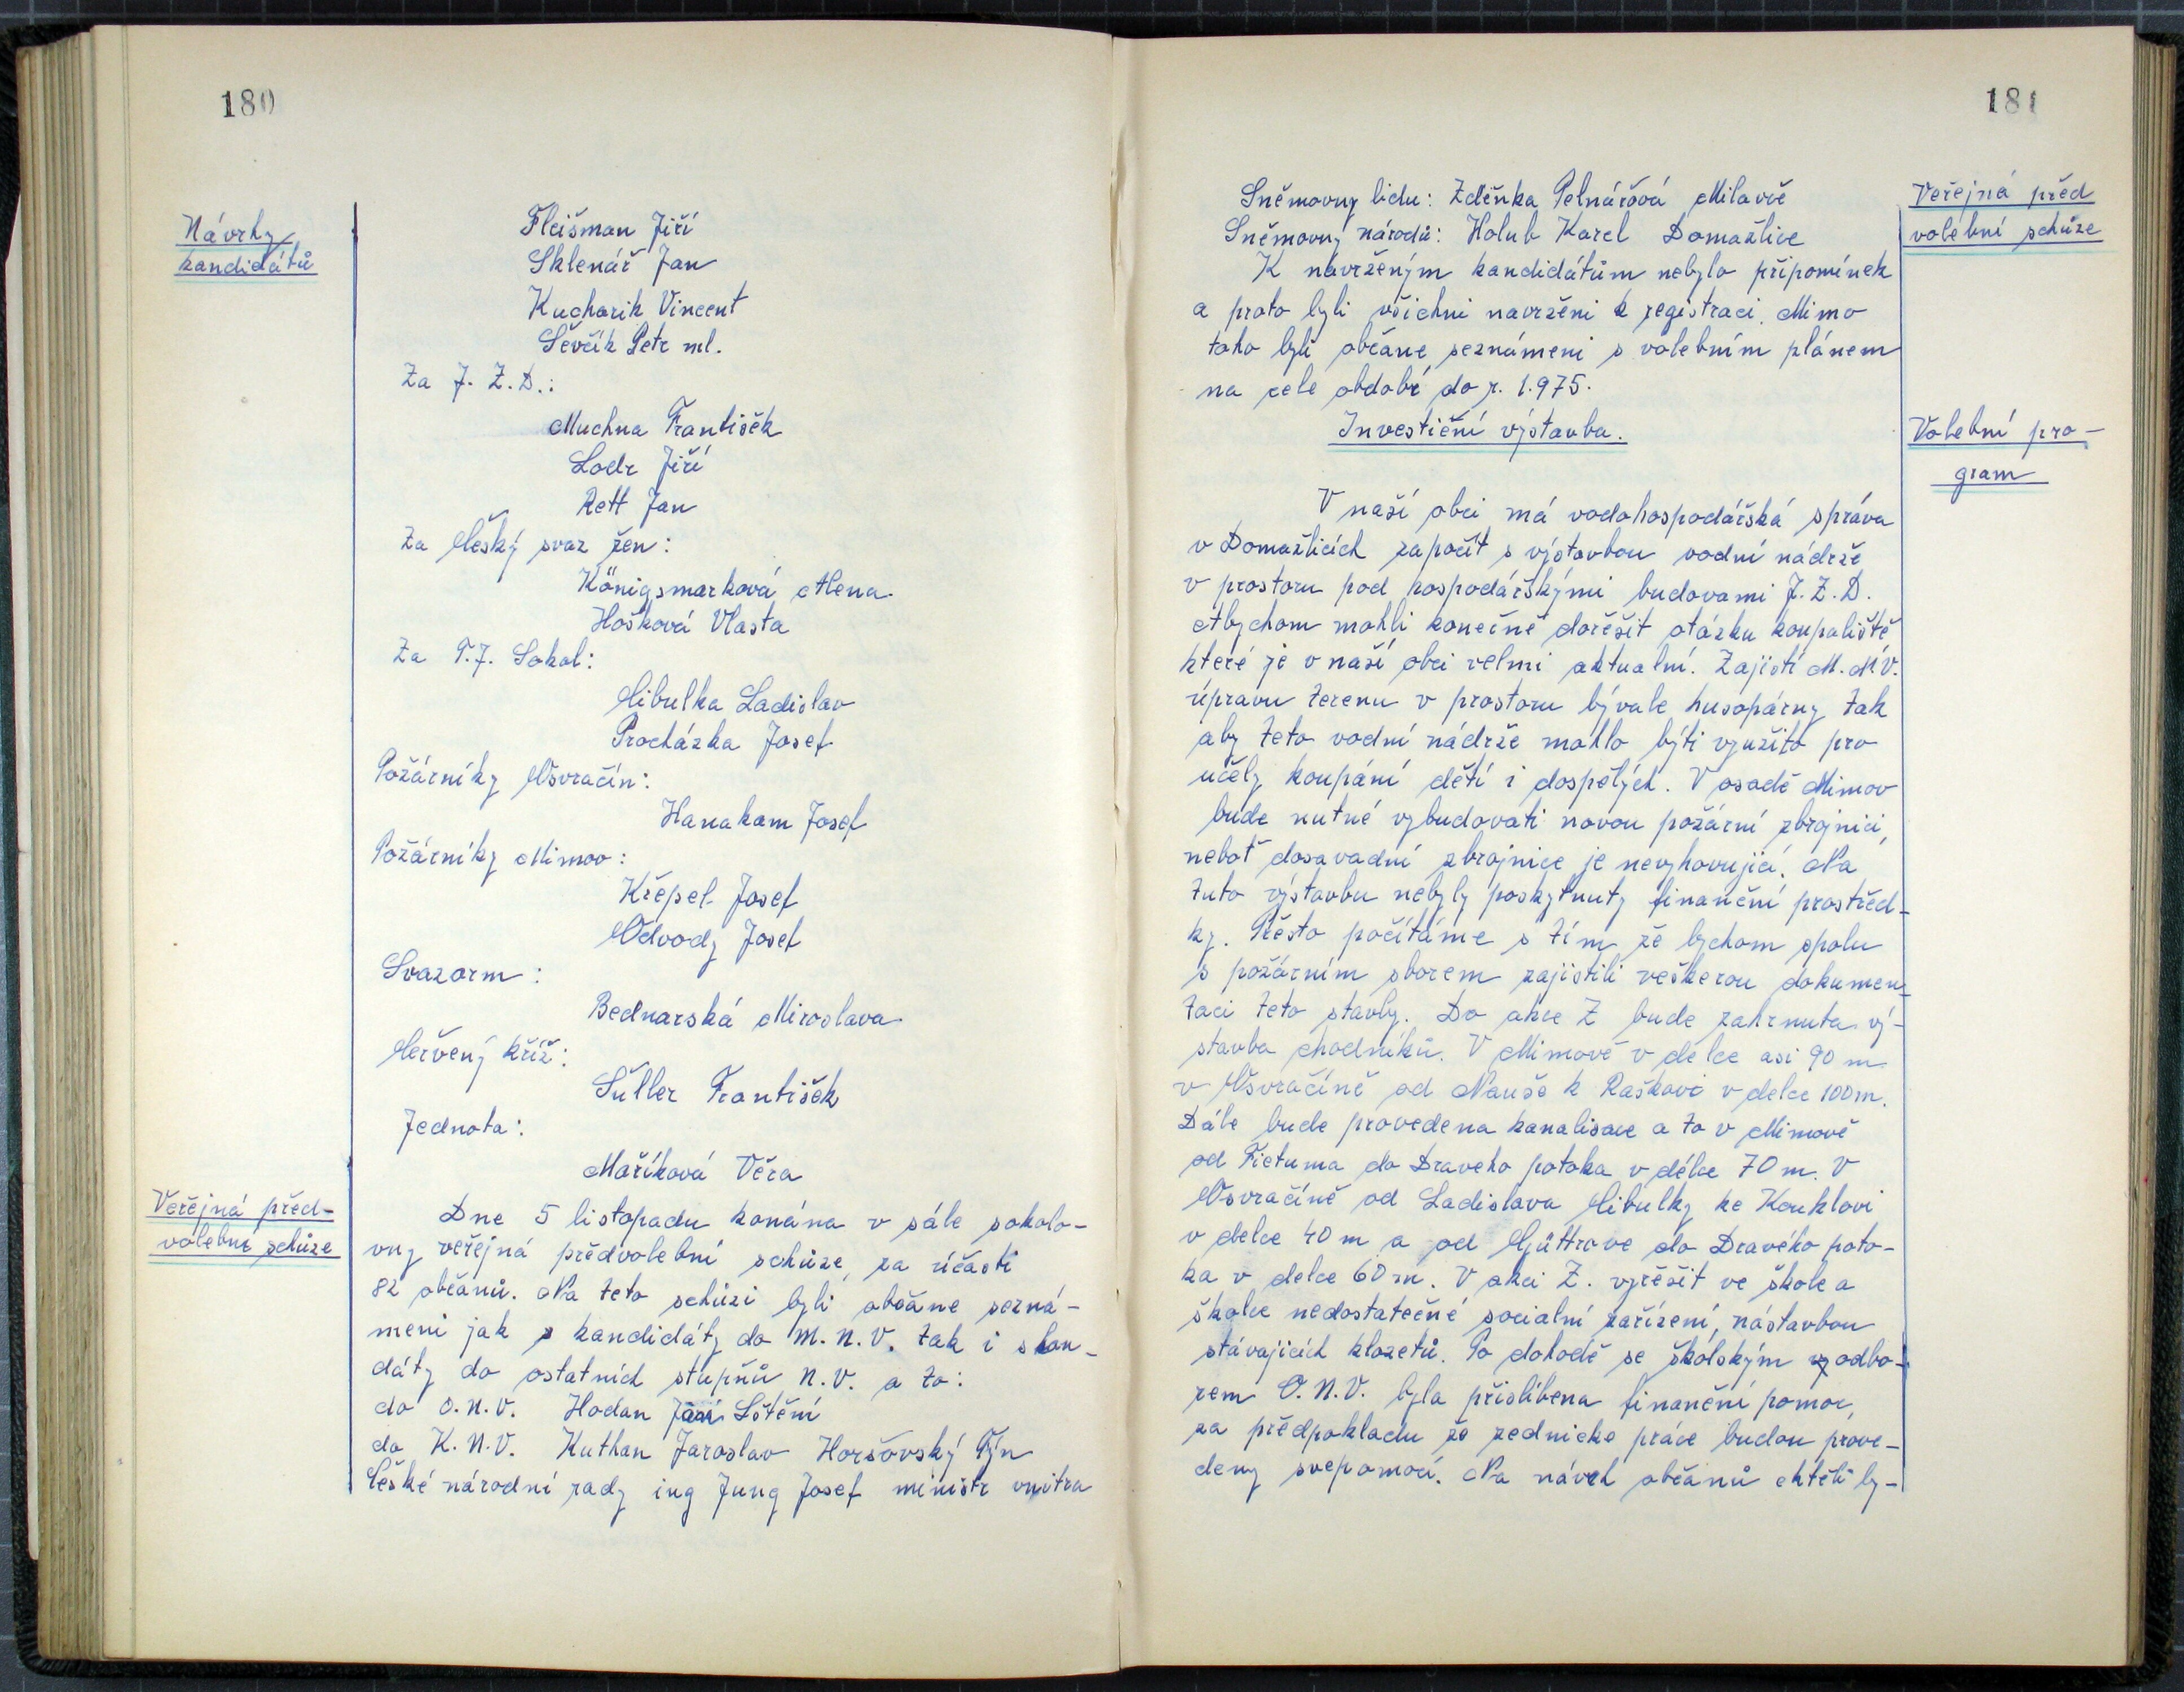 180
Návrhy
kandidátů
Fleišman Jiří
Sklenář Jan
Kucharik Vincent
Ševčík Petr ml.
Za J. Z. D.:
Muchna František
Lodr Jiří
Rett Jan
Za Český svaz žen:
Königsmarková Alena
Hošková Vlasta
Za T.J. Sokol:
Cibulka Ladislav
Procházka Josef
Požárníky Osvračín:
Hanakam Josef
Požárníky Mimov:
Křepel Josef
Odvody Josef
Svazarm:
Bednarská Miroslava
Červený kříž:
Šuller František
Jednota:
Maříková Věra
Veřejná před-
volební schůze
Dne 5 listopadu konána v sále sokolo-
vny veřejná předvolební schůze, za účasti
82 občanů. Na teto schůzi byli občane sezná-
meni jak s kandidáty do M.N.V. tak i s kan-
dáty do ostatních stupňů N.V. a to:
do O.N.V. Hodan Lštění
do K.N.V. Kuthan Jaroslav Horšovský Týn
České národní rady ing Jung Josef ministr vnitra
181
Sněmovny lidu: Zděnka Pelnářová Milavče
Sněmovny národů: Holub Karel Domažlice
K navrženým kandidátům nebylo připomínek
a proto byli všichni navrženi k registraci. Mimo
toho byli občane seznámeni s volebním plánem
na cele období do r. 1.975.
Veřejná před
volební schůze
Investiční výstavba.
Volební pro-
gram
V naší obci má vodohospodářská správa
v Domažlicích započít s výstavbou vodní nádrže
v prostoru pod hospodářskými budovami J.Z.D.
Abychom mohli konečně dořěšit otázku koupaliště
které je v naší obci velmi aktualní. Zajistí M.N.V.
úpravu terenu v prostoru bývale husopárny tak
aby teto vodní nádrže mohlo býti využito pro
učěly koupání dětí i dospělých. V osadě Mimov
bude nutné vybudovati novou požární zbrojnici,
neboť dosavadní zbrojnice je nevyhovující. Na
tuto výstavbu nebyly poskytnuty finanční prostřed-
ky. Přesto počítáme s tím že bychom spolu
s požárním sborem zajistili veškerou dokumen-
taci teto stavby. Do akce Z bude zahrnuta vý-
stavba chodníků. V Mimově v delce asi 90 m
v Osvračíně od Nauše k Raškovi v delce 100 m.
Dále bude provedena kanalisace a to v Mimově
od Fictuma do Draveho potoka v délce 70 m. V
Osvračíně od Ladislava Cibulky ke Kouklovi
v delce 40 m a od do Dravého poto-
ka v delce 60 m. V akci Z. vyřěšit ve škole a
školce nedostatečné socialní zařízení, nástavbou
stávajících klozetů. Po dohodě se školským odbo-
rem O.N.V. byla přislíbena finanční pomoc,
za předpokladu že zednicke práce budou prove-
deny svepomocí. Na návrh občanů chtěli by-